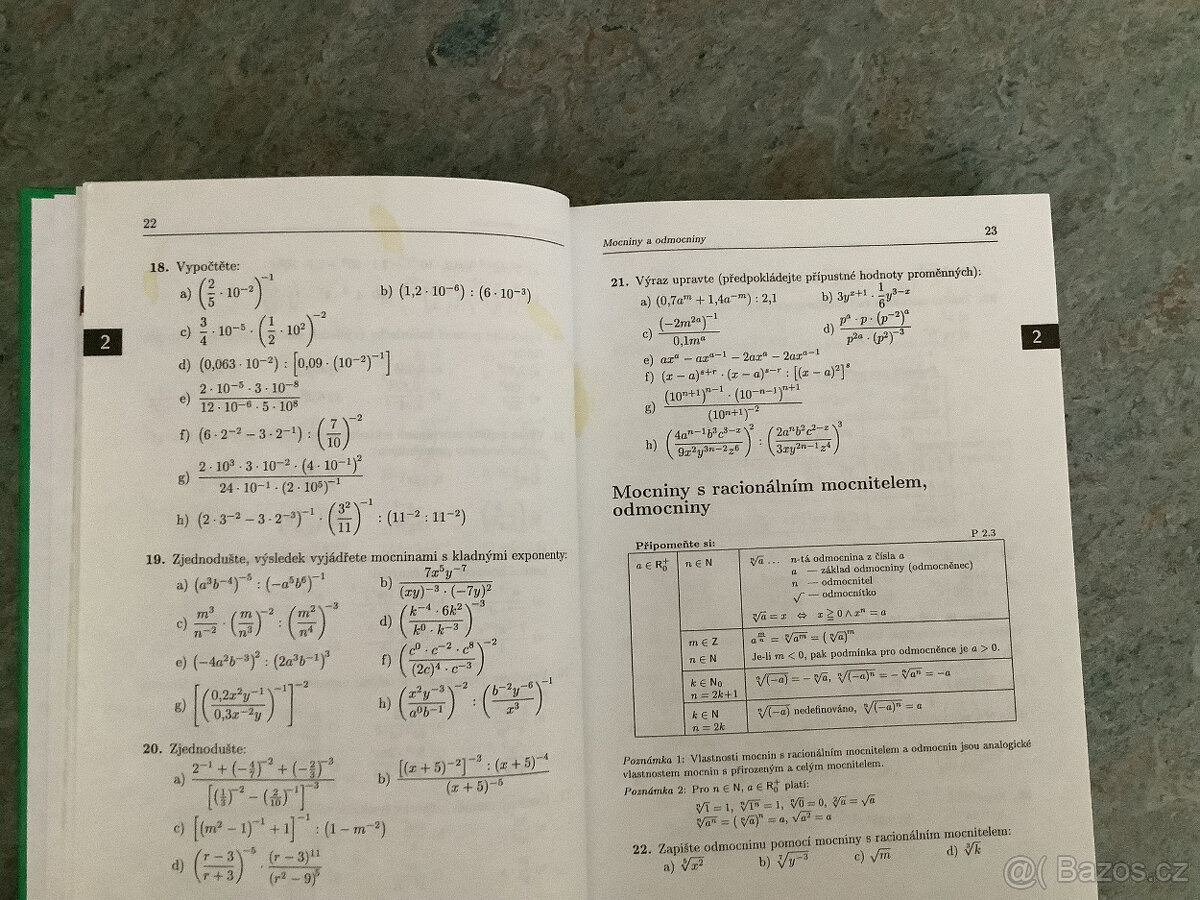 22
18. Vypočtěte:
a) (2/5 · 10⁻²)⁻¹ b) (1,2 · 10⁻⁶) : (6 · 10⁻³)
c) 3/4 · 10⁻⁵ · (1/2 · 10²)⁻²
d) (0,063 · 10⁻²) : [0,09 · (10⁻²)⁻¹]
e) (2 · 10⁻⁵ · 3 · 10⁻⁸)/(12 · 10⁻⁶ · 5 · 10⁸)
f) (6 · 2⁻² − 3 · 2⁻¹) : (7/10)⁻²
g) (2 · 10³ · 3 · 10⁻² · (4 · 10⁻¹)²)/(24 · 10⁻¹ · (2 · 10⁵)⁻¹)
h) (2 · 3⁻² − 3 · 2⁻³)⁻¹ · (3²/11)⁻¹ : (11⁻² : 11⁻²)
2
19. Zjednodušte, výsledek vyjádřete mocninami s kladnými exponenty:
a) (a³b⁻⁴)⁻⁵ : (−a⁵b⁶)⁻¹ b) (7x⁵y⁻⁷)/((xy)⁻³ · (−7y)²)
c) m³/n⁻² · (m/n³)⁻² : (m²/n⁴)⁻³ d) ((k⁻⁴ · 6k²)/(k⁰ · k⁻³))⁻³
e) (−4a²b⁻³)² : (2a³b⁻¹)³ f) ((c⁰ · c⁻² · c⁸)/((2c)⁴ · c⁻³))⁻²
g) [((0,2x²y⁻¹)/(0,3x⁻²y))⁻¹]⁻² h) ((x²y⁻³)/(a⁰b⁻¹))⁻² : ((b⁻²y⁻⁶)/x³)⁻¹
20. Zjednodušte:
a) (2⁻¹ + (−4/7)⁻² + (−2/3)⁻³)/[(1/3)⁻² − (2/10)⁻¹]⁻³ b) ([(x + 5)⁻²]⁻³ : (x + 5)⁻⁴)/(x + 5)⁻⁵
c) [(m² − 1)⁻¹ + 1]⁻¹ : (1 − m⁻²)
d) ((r − 3)/(r + 3))⁻⁵ · (r − 3)¹¹/(r² − 9)⁵
Mocniny a odmocniny 23
21. Výraz upravte (předpokládejte přípustné hodnoty proměnných):
a) (0,7aᵐ + 1,4a⁻ᵐ) : 2,1 b) 3yˣ⁺¹ · 1/6 y³⁻ˣ
c) (−2m²ᵃ)⁻¹/0,1mᵃ d) (pᵃ · p · (p⁻²)ᵃ)/(p²ᵃ · (p²)⁻³)
e) axᵃ − axᵃ⁻¹ − 2axᵃ − 2axᵃ⁻¹
f) (x − a)ˢ⁺ʳ · (x − a)ˢ⁻ʳ : [(x − a)²]ˢ
g) ((10ⁿ⁺¹)ⁿ⁻¹ · (10⁻ⁿ⁻¹)ⁿ⁺¹)/(10ⁿ⁺¹)⁻²
h) ((4aⁿ⁻¹b³c³⁻ˣ)/(9x²y³ⁿ⁻²z⁶))² : ((2aⁿb²c²⁻ˣ)/(3xy²ⁿ⁻¹z⁴))³
2
Mocniny s racionálním mocnitelem,
odmocniny
Připomeňte si: P 2.3
a ∈ R₀⁺ n ∈ N ⁿ√a ... n-tá odmocnina z čísla a
a — základ odmocniny (odmocněnec)
n — odmocnitel
√ — odmocnítko
ⁿ√a = x ⇔ x ≧ 0 ∧ xⁿ = a
m ∈ Z
n ∈ N
a^(m/n) = ⁿ√aᵐ = (ⁿ√a)ᵐ
Je-li m < 0, pak podmínka pro odmocněnce je a > 0.
k ∈ N₀
n = 2k+1
ⁿ√(−a) = − ⁿ√a, ⁿ√(−a)ⁿ = − ⁿ√aⁿ = −a
k ∈ N
n = 2k
ⁿ√(−a) nedefinováno, ⁿ√(−a)ⁿ = a
Poznámka 1: Vlastnosti mocnin s racionálním mocnitelem a odmocnin jsou analogické
vlastnostem mocnin s přirozeným a celým mocnitelem.
Poznámka 2: Pro n ∈ N, a ∈ R₀⁺ platí:
ⁿ√1 = 1, ⁿ√1ⁿ = 1, ⁿ√0 = 0, ²√a = √a
ⁿ√aⁿ = (ⁿ√a)ⁿ = a, √a² = a
22. Zapište odmocninu pomocí mocniny s racionálním mocnitelem:
a) ⁵√x² b) ⁷√y⁻³ c) √m d) ³√k
@( Bazos.cz